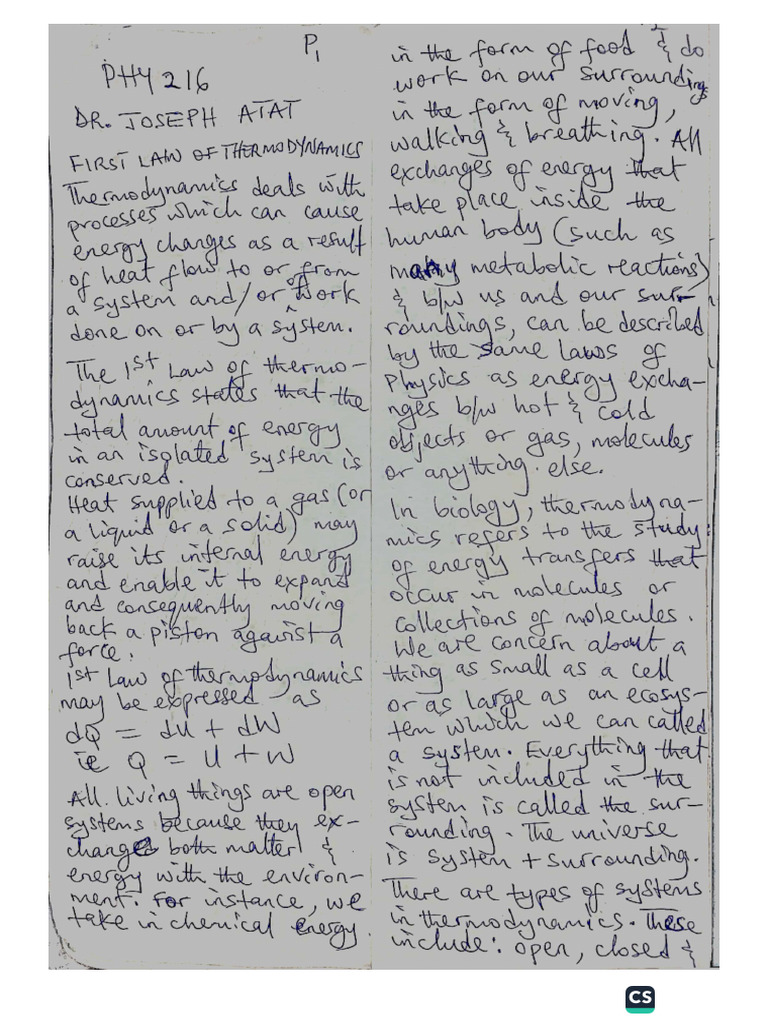 P1
PHY 216
DR. JOSEPH ATAT
FIRST LAW OF THERMODYNAMICS
Thermodynamics deals with
processes which can cause
energy changes as a result
of heat flow to or from
a system and/or of work
done on or by a system.
The 1st Law of thermo-
dynamics states that the
total amount of energy
in an isolated system is
conserved.
Heat supplied to a gas (or
a liquid or a solid) may
raise its internal energy
and enable it to expand
and consequently moving
back a piston against a
force.
1st Law of thermodynamics
may be expressed as
dQ = dU + dW
ie Q = U + W
All living things are open
systems because they ex-
changed both matter &
energy with the environ-
ment. For instance, we
take in chemical energy
in the form of food & do
work on our surroundings
in the form of moving,
walking & breathing. All
exchanges of energy that
take place inside the
human body (such as
many metabolic reactions)
& b/w us and our sur-
roundings, can be described
by the same laws of
Physics as energy excha-
nges b/w hot & cold
objects or gas, molecules
or anything else.
In biology, thermodyna-
mics refers to the study
of energy transfers that
occur in molecules or
collections of molecules.
We are concern about a
thing as small as a cell
or as large as an ecosys-
tem which we can called
a system. Everything that
is not included in the
system is called the sur-
rounding. The universe
is system + surrounding.
There are types of systems
in thermodynamics. These
include: open, closed &
CS